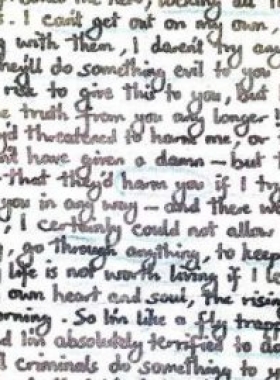 me here, locking all
. I can't get out on my own,
g with them, I daren't try any
he'll do something evil to you
risk to give this to you, but
e truth from you any longer
y'd threatened to harm me, or
n't have given a damn – but
that they'd harm you if I t
you in any way – and there w
, I certainly could not allow
, go through anything, to keep
life is not worth living if I l
own heart and soul, the rising
orning. So I'm like a fly trapp
nd I'm absolutely terrified to do
l criminals do something to y